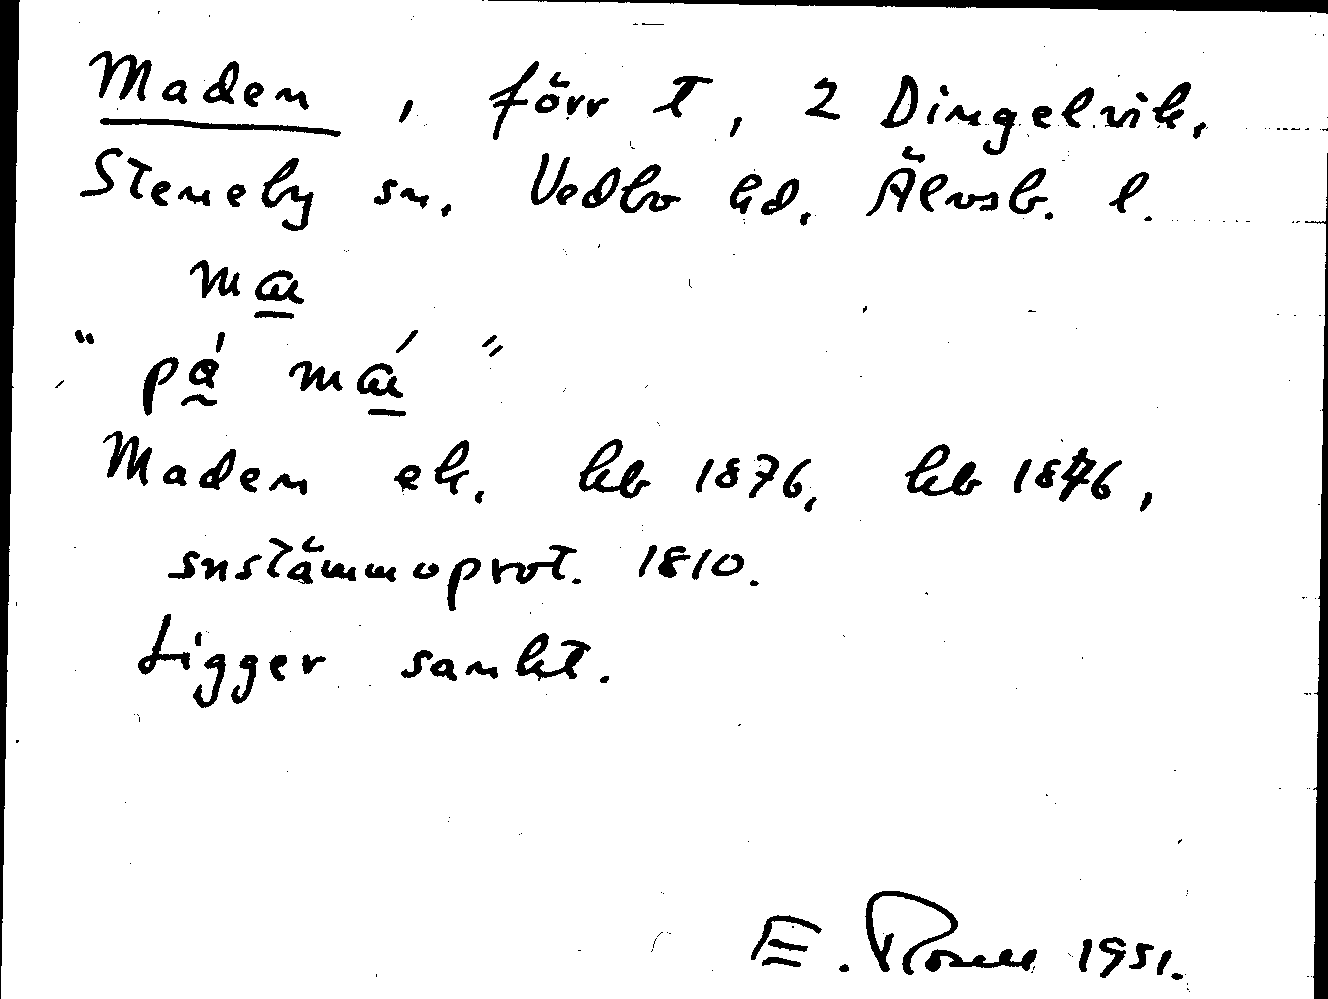 Maden, förr t, 2 Dingelvik,
Steneby sn, Vedbo hd, Älvsb. l.
"på
Maden ek. hb 1876, hb 1846,
snstämmoprot. 1810.
Ligger sankt.
E. Rosell 1951.